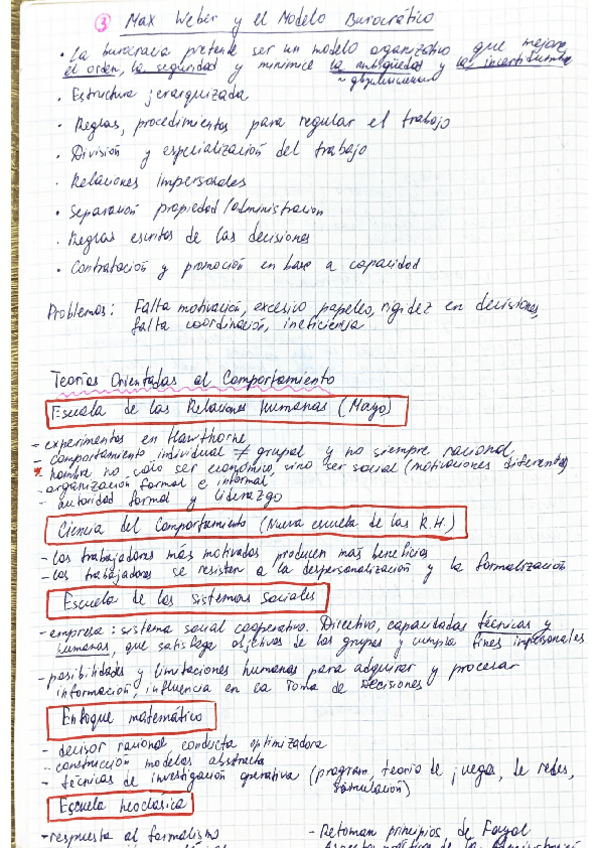 ③ Max Weber y el Modelo Burocrático
• La burocracia pretende ser un modelo organizativo que mejore
el orden, la seguridad y minimice la ambigüedad y la incertidumbre
• Estructura jerarquizada
• Reglas, procedimientos para regular el trabajo
• División y especialización del trabajo
• Relaciones impersonales
• Separación propiedad/administración
• Reglas escritas de las decisiones
• Contratación y promoción en base a capacidad
Problemas: Falta motivación, excesivo papeleo, rigidez en decisiones,
falta coordinación, ineficiencia
Teorías Orientadas al Comportamiento
Escuela de las Relaciones humanas (Mayo)
- experimentos en Hawthorne
- comportamiento individual ≠ grupal y no siempre racional
* hombre no solo ser económico, sino ser social (motivaciones diferentes)
- organización formal e informal
- autoridad formal y liderazgo
Ciencia del Comportamiento (Nueva escuela de las R.H.)
- los trabajadores más motivados producen más beneficio
- los trabajadores se resisten a la despersonalización y la formalización
Escuela de los sistemas sociales
- empresa: sistema social cooperativo. Directivo, capacidades técnicas y
humanas, que satisfaga objetivos de los grupos y cumpla fines impersonales
- posibilidades y limitaciones humanas para adquirir y procesar
información, influencia en la Toma de Decisiones
Enfoque matemático
- decisor racional conducta optimizadora
- construcción modelos abstracta
- técnicas de investigación operativa (program, teoría de juegos, de redes,
simulación)
Escuela neoclásica
- respuesta al formalismo
- Retoman principios de Fayol